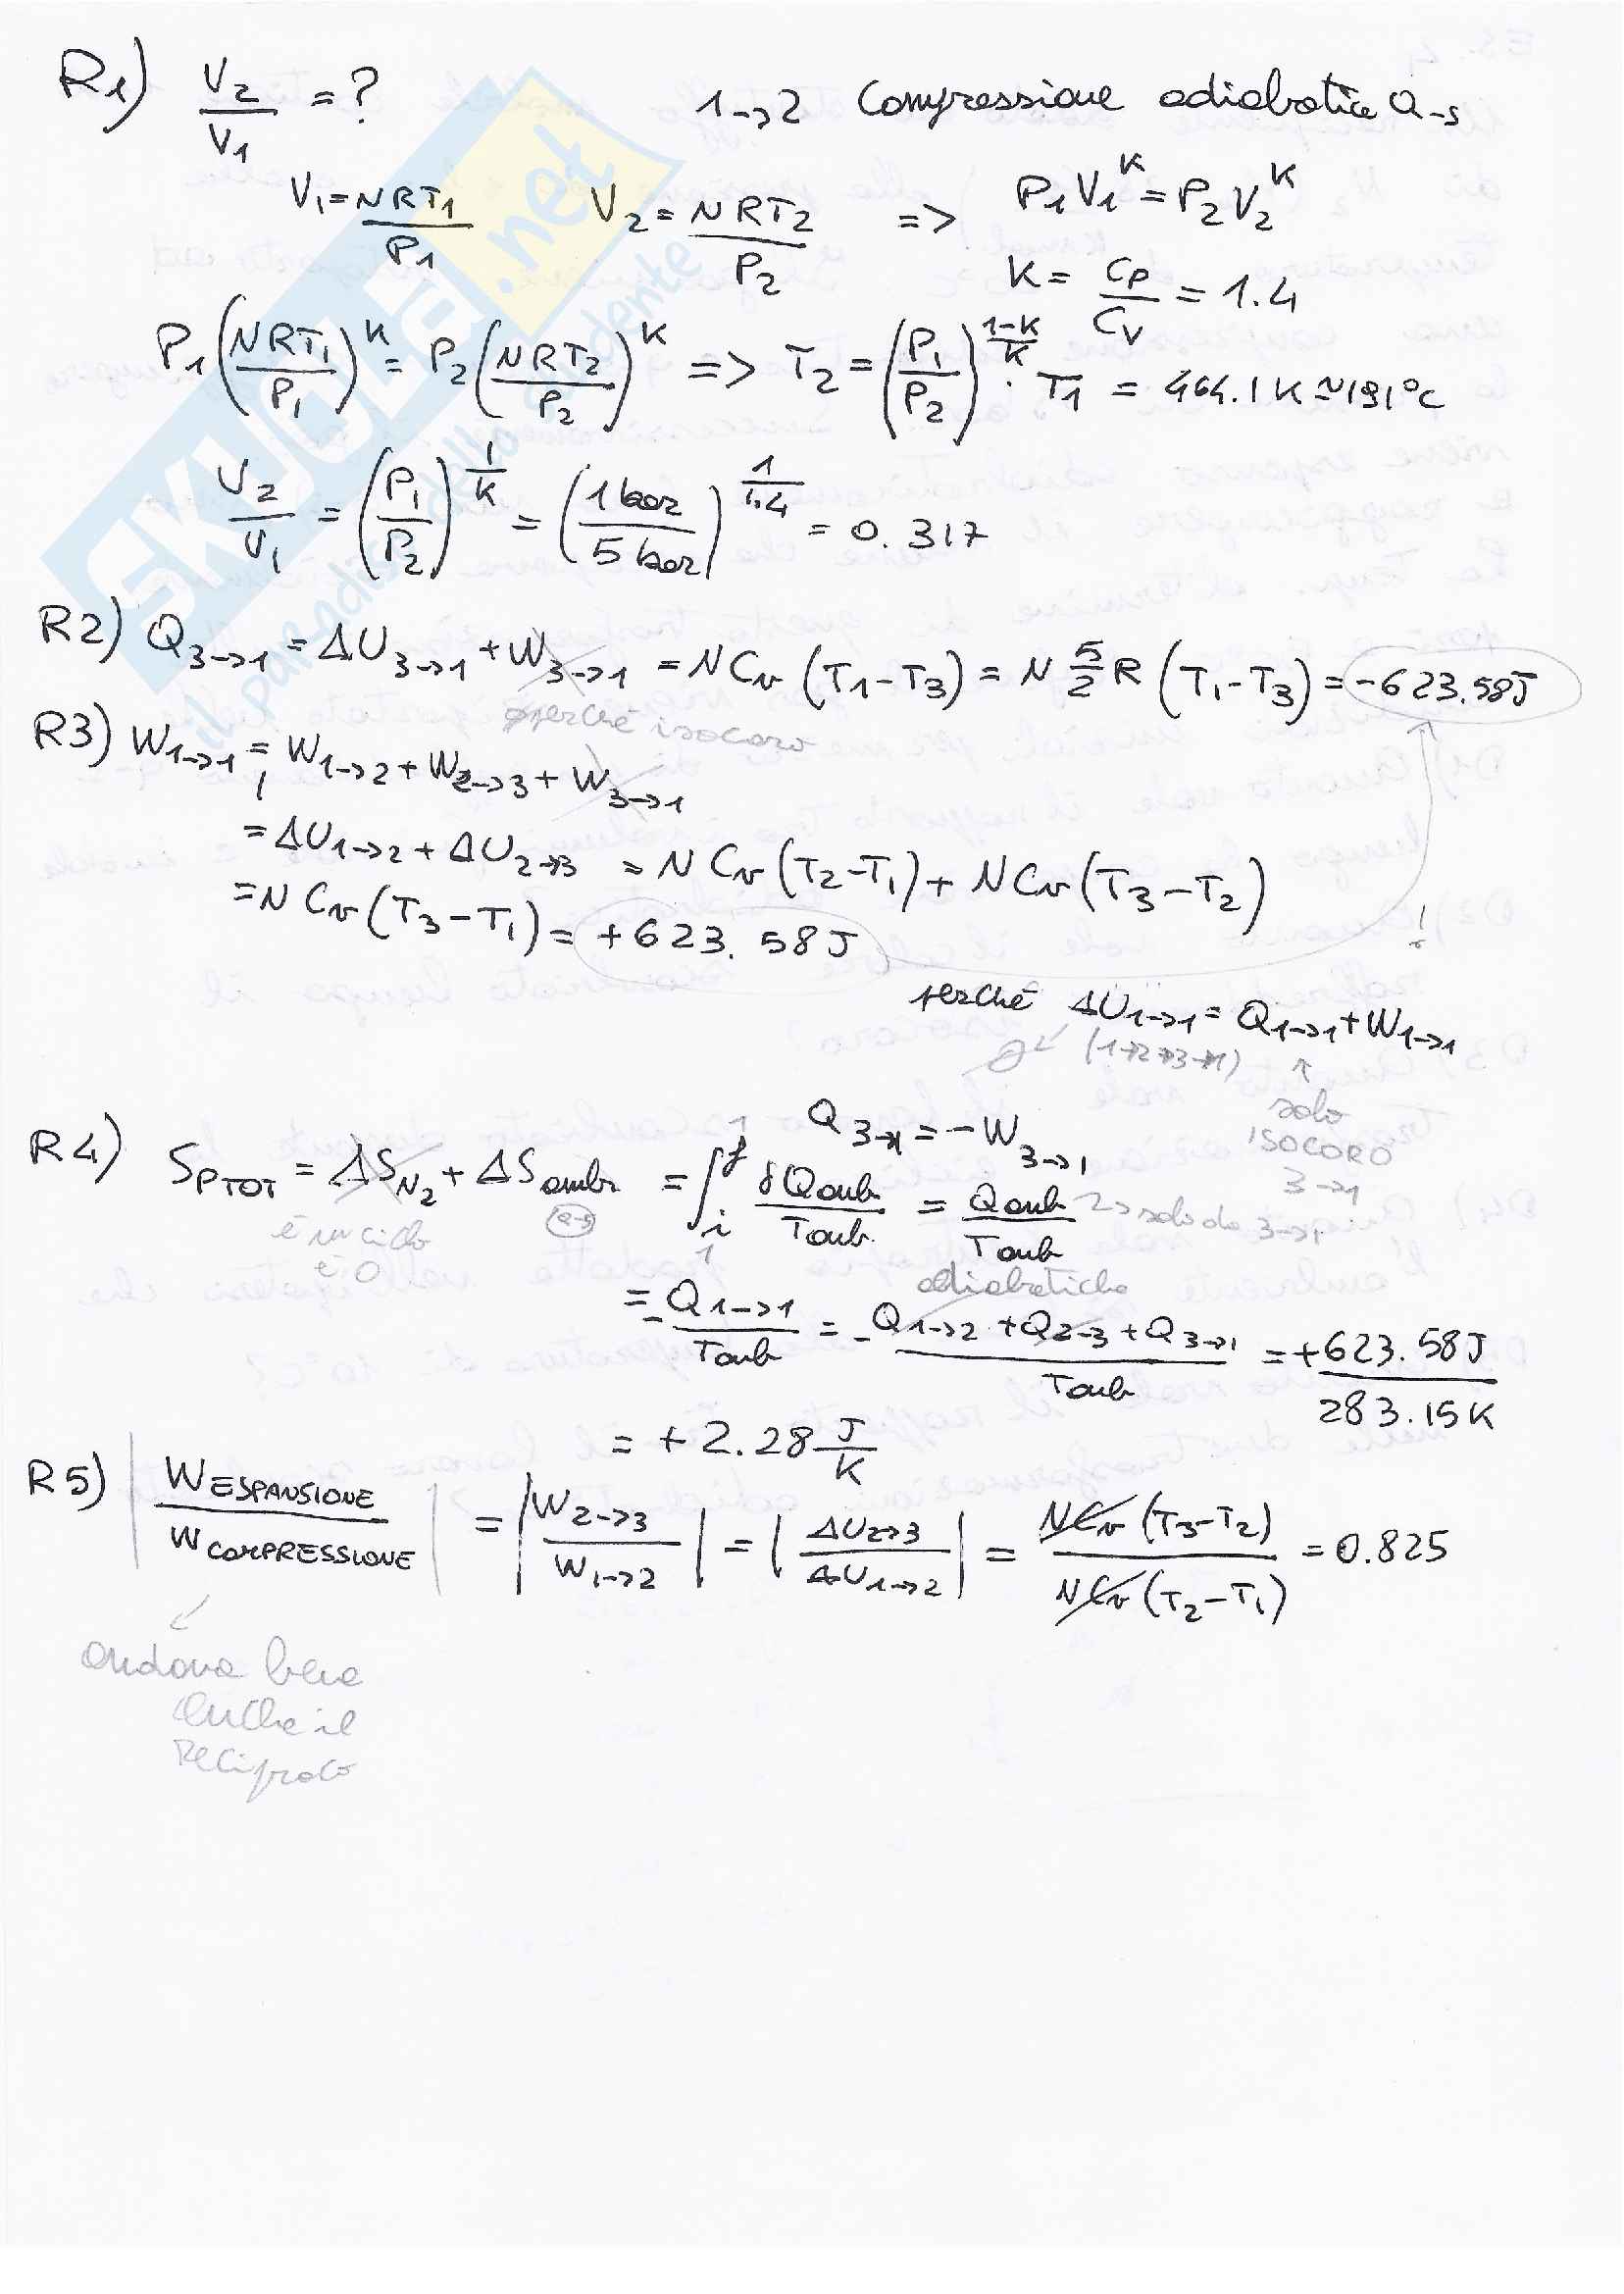 R1) V2/V1 = ? 1→2 Compressione adiabatica Q-s
V1 = NRT1/P1 V2 = NRT2/P2 => P1V1^K = P2V2^K
K = CP/CV = 1.4
P1(NRT1/P1)^K = P2(NRT2/P2)^K => T2 = (P1/P2)^(1-K/K) · T1 = 464.1 K ≃ 191°C
V2/V1 = (P1/P2)^(1/K) = (1 bar/5 bar)^(1/1.4) = 0.317
R2) Q3→1 = ΔU3→1 + W3→1 = NCv (T1-T3) = N 5/2 R (T1-T3) = -623.58J
perché isocoro
R3) W1→1 = W1→2 + W2→3 + W3→1
= ΔU1→2 + ΔU2→3 = NCv (T2-T1) + NCv (T3-T2)
= NCv (T3-T1) = +623.58J
!
perché ΔU1→1 = Q1→1 + W1→1
0 (1→2→3→1)
solo
ISOCORO
3→1
Q3→1 = -W3→1
R4) SP TOT = ΔSN2 + ΔSamb = ∫ δQamb/Tamb = Qamb/Tamb → solo da 3→1
è un ciclo
è 0
adiabatiche
= -Q1→1/Tamb = -Q1→2 + Q2→3 + Q3→1/Tamb = +623.58J/283.15K
= +2.28 J/K
R5) |WESPANSIONE/WCOMPRESSIONE| = |W2→3/W1→2| = |ΔU2→3/ΔU1→2| = NCv (T3-T2)/NCv (T2-T1) = 0.825
andava bene
anche il
reciproco
SKUOLA.net
il paradiso dello studente